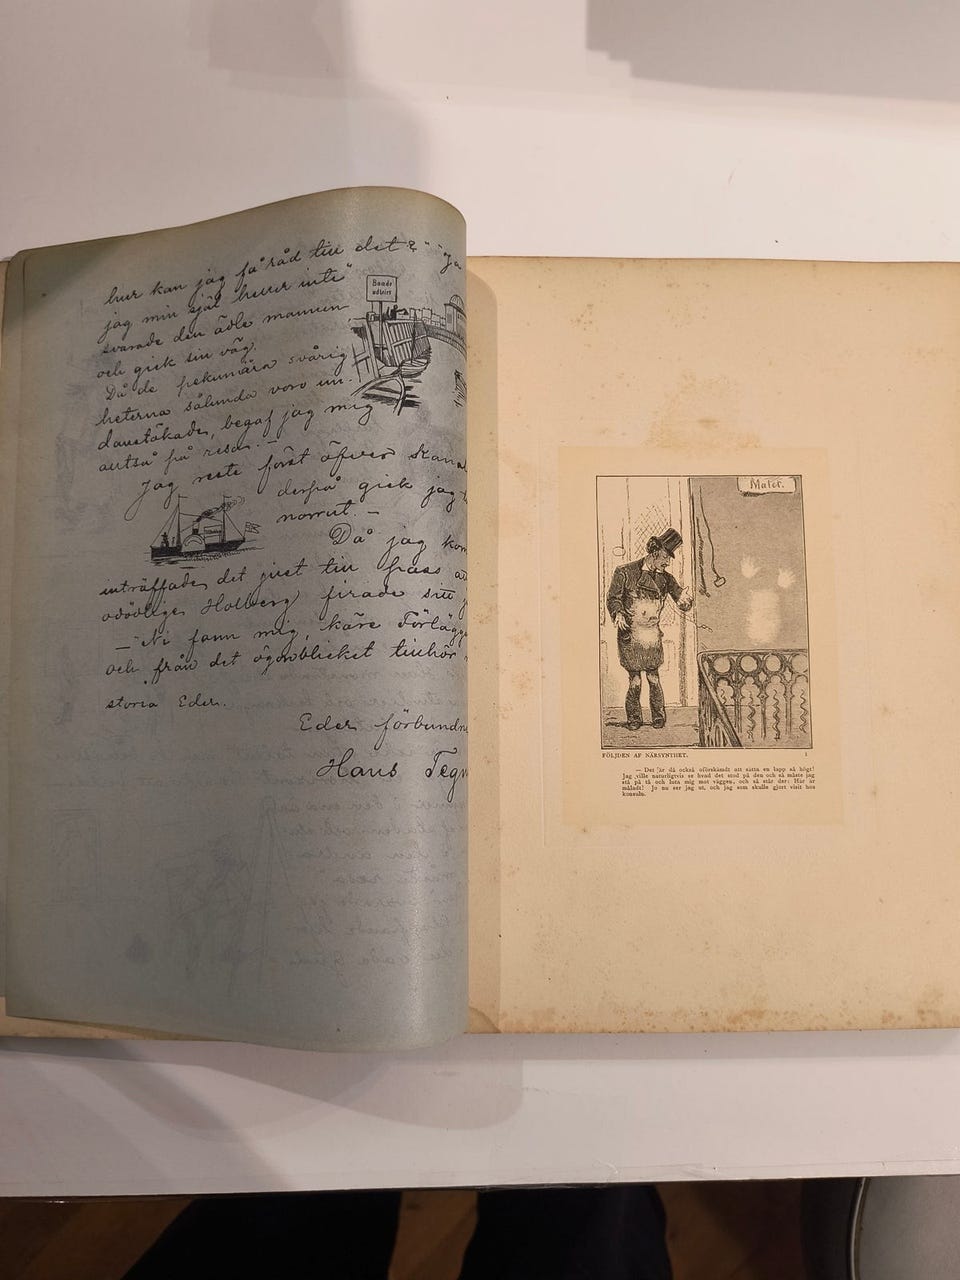 hur kan jag få råd till det?" "Ja
jag min själ heller inte"
svarade den ädle mannen
och gick sin väg.
Då de pekuniära svårig
heterna sålunda voro un-
danstökade, begaf jag mig
alltså på resa. —
Jag reste först öfver
derpå gick jag
norrut. —
Då jag kom
inträffade det just till pass
odödlige Holberg firade sitt
— Ni fann mig, käre Förlägg
och från det ögonblicket tillhör
storia Eder.
Eder förbundne
Hans Tegn
Baade
udleies
Malet.
FÖLJDEN AF NÄRSYNTHET. 1
— Det är då också oförskämdt att sätta en lapp så högt!
Jag ville naturligtvis se hvad det stod på den och så måste jag
stå på tå och luta mig mot väggen, och så står der: Här är
måladt! Jo nu ser jag ut, och jag som skulle gjort visit hos
konsuln.